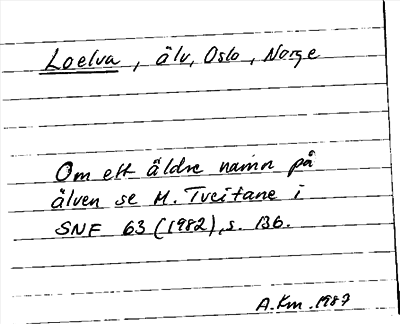 Loelva, älv, Oslo, Norge
Om ett äldre namn på
älven se M. Tveitane i
SNF 63 (1982), s. 136.
A. Km. 1987